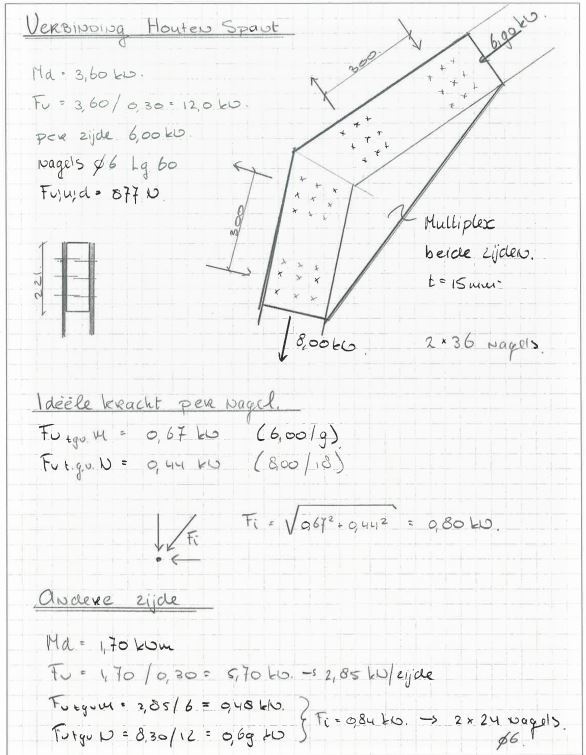 Verbinding Houten Spant
Md = 3,60 kN.
Fv = 3,60 / 0,30 = 12,0 kN.
per zijde 6,00 kN.
nagels ø6 Lg 60
Fv;u;d = 877 N
300
6,90 kN
300
Multiplex
beide zijden.
t = 15 mm.
221
8,00 kN.
2 * 36 nagels.
Ideële kracht per nagel.
Fv tgv. M = 0,67 kN (6,00/9)
Fv t.g.v. N = 0,44 kN (8,00/18)
Fi
Fi = √0,67² + 0,44² = 0,80 kN.
Andere zijde
Md = 1,70 kNm
Fv = 1,70 / 0,30 = 5,70 kN. → 2,85 kN/zijde
Fv tgv M = 2,85/6 = 0,48 kN.
Fv tgv N = 8,30/12 = 0,69 kN
Fi = 0,84 kN. → 2 * 24 nagels
ø6.